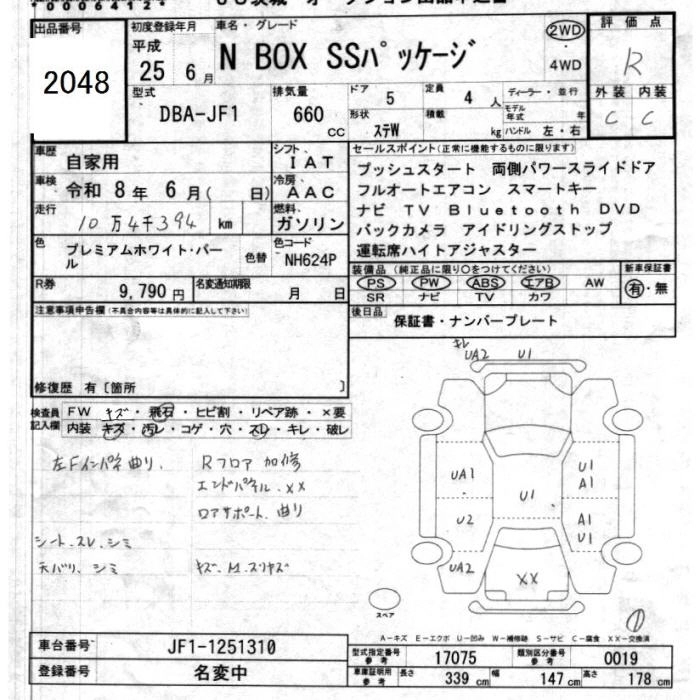 出品番号
2048
初度登録年月
平成
25 6月
車名・グレード
N BOX SSパッケージ
2WD
・
4WD
評価点
R
外装 内装
C C
型式
DBA-JF1
排気量
660 cc
ドア 5
形状 ステW
定員 4 人
積載 kg
ディーラー・並行
モデル年式 年
ハンドル 左・右
車歴 自家用
車検 令和 8年 6月( 日)
走行 10万4千394 km
色 プレミアムホワイト・パール
色替
シフト IAT
冷房 AAC
燃料 ガソリン
色コード NH624P
セールスポイント(正常に機能するものに限ります)
プッシュスタート 両側パワースライドドア
フルオートエアコン スマートキー
ナビ TV Bluetooth DVD
バックカメラ アイドリングストップ
運転席ハイトアジャスター
R券 9,790 円
名変通知期限 月 日
装備品(純正品に限り〇をつけてください)
PS PW ABS エアB AW
SR ナビ TV カワ
新車保証書
有・無
注意事項申告欄(不具合内容等は具体的に記入して下さい)
後日品 保証書・ナンバープレート
修復歴 有[箇所 ]
検査員記入欄
FW キズ・飛石・ヒビ割・リペア跡・×要
内装 キズ・汚レ・コゲ・穴・スレ・キレ・破レ
左Fインパネ曲り、 Rフロア加修
エンドパネル、XX
ロアサポート、曲り
シート、スレ、シミ
天バリ、シミ キズ、M、スリキズ
キレ
UA2 U1
UA1 U1 A1
U1
U2 A1 U1
UA2 XX
スペア
①
A-キズ E-エクボ U-凹み W-補修跡 S-サビ C-腐食 XX-交換済
車台番号 JF1-1251310
登録番号 名変中
型式指定番号 参考 17075
類別区分番号 参考 0019
車庫証明用 参考 長さ 339 cm 幅 147 cm 高さ 178 cm